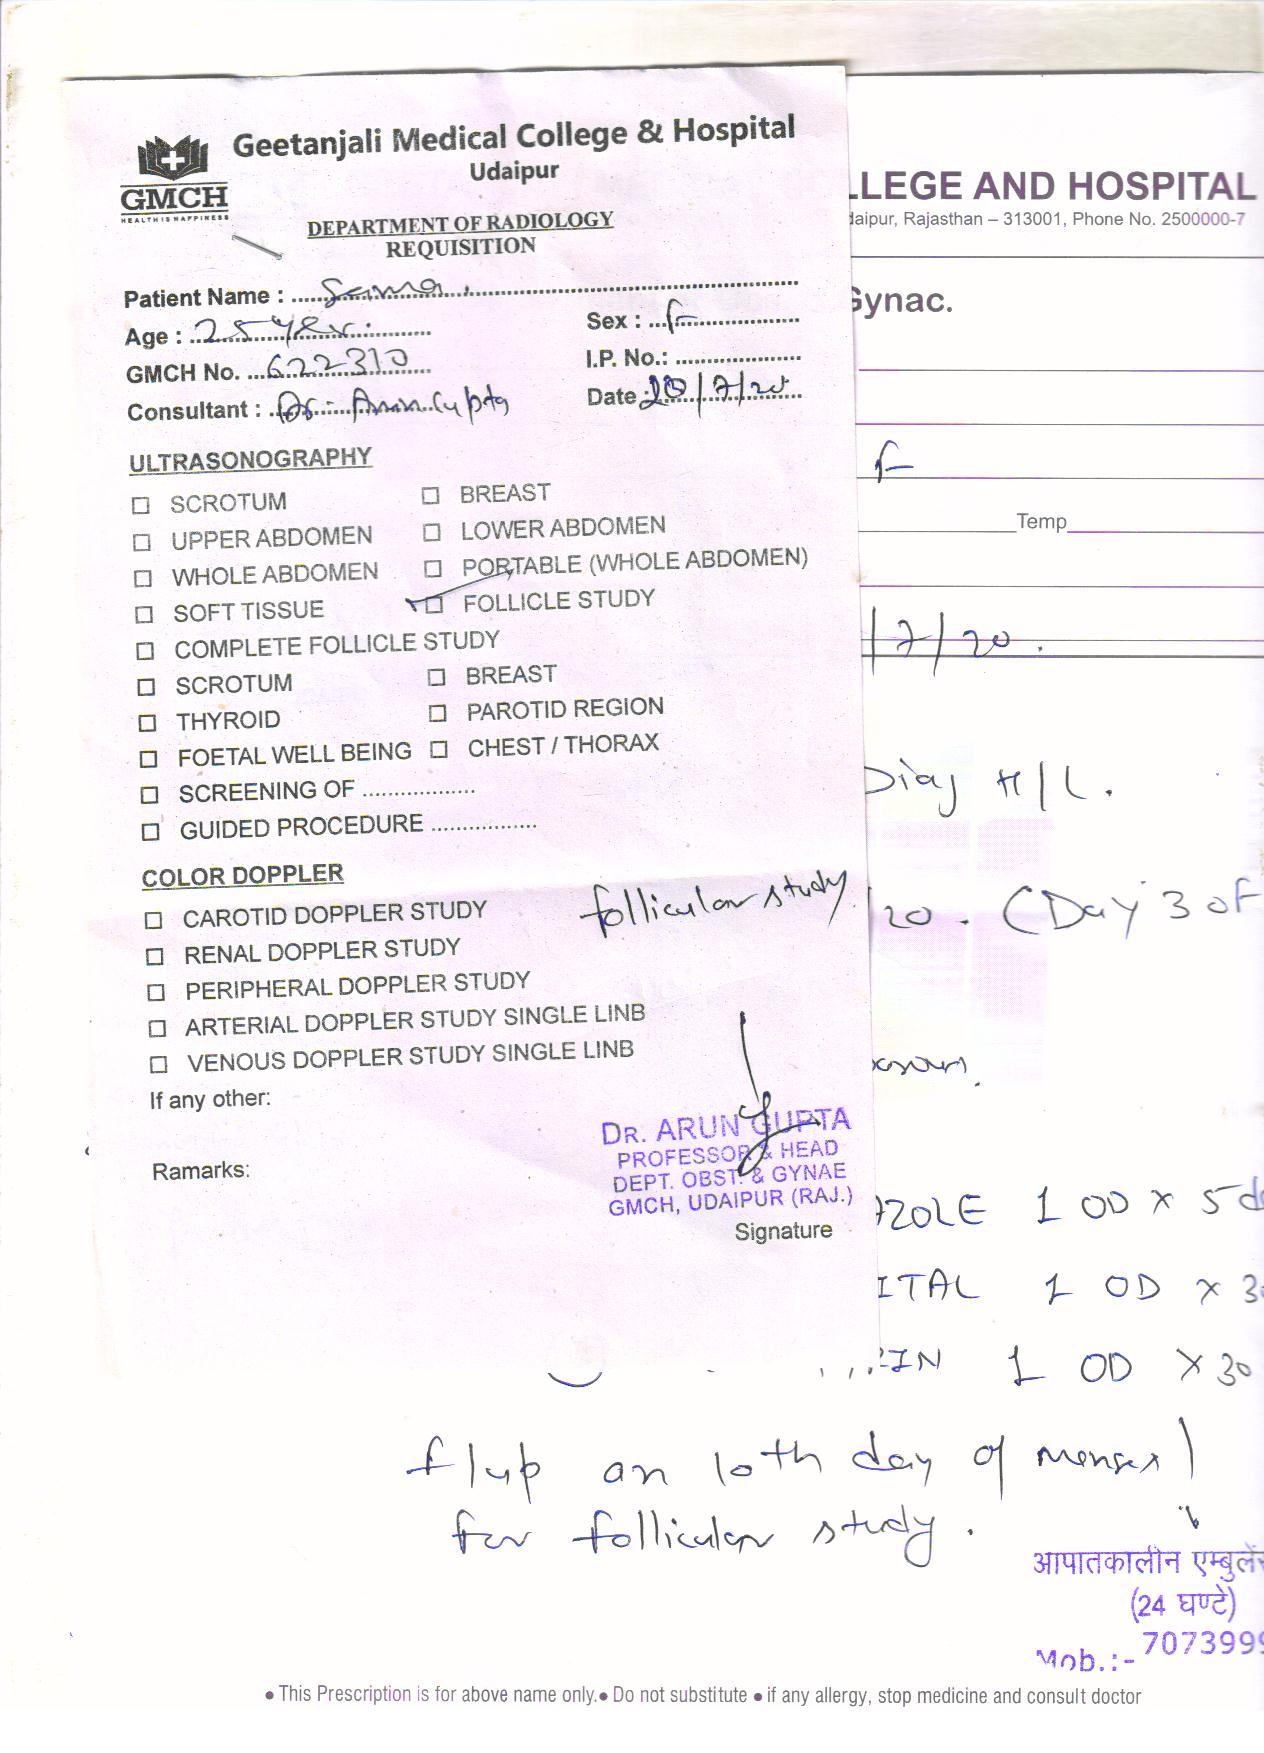 Geetanjali Medical College & Hospital
Udaipur
GMCH
HEALTH IS HAPPINESS
DEPARTMENT OF RADIOLOGY
REQUISITION
Patient Name : Sema
Age : 25 yer. Sex : F
GMCH No. 622310 I.P. No.:
Consultant : Dr. Arun Gupta Date : 20/7/20
ULTRASONOGRAPHY
☐ SCROTUM ☐ BREAST
☐ UPPER ABDOMEN ☐ LOWER ABDOMEN
☐ WHOLE ABDOMEN ☐ PORTABLE (WHOLE ABDOMEN)
☐ SOFT TISSUE ☑ FOLLICLE STUDY
☐ COMPLETE FOLLICLE STUDY
☐ SCROTUM ☐ BREAST
☐ THYROID ☐ PAROTID REGION
☐ FOETAL WELL BEING ☐ CHEST / THORAX
☐ SCREENING OF
☐ GUIDED PROCEDURE
COLOR DOPPLER
☐ CAROTID DOPPLER STUDY
follicular study
☐ RENAL DOPPLER STUDY
☐ PERIPHERAL DOPPLER STUDY
☐ ARTERIAL DOPPLER STUDY SINGLE LINB
☐ VENOUS DOPPLER STUDY SINGLE LINB
If any other:
DR. ARUN GUPTA
PROFESSOR & HEAD
DEPT. OBST. & GYNAE
GMCH, UDAIPUR (RAJ.)
Ramarks:
Signature
LLEGE AND HOSPITAL
daipur, Rajasthan – 313001, Phone No. 2500000-7
Gynac.
F
Temp
/7/20.
Diag H/L.
/20. (Day 3 of
ZOLE 1 OD x 5 d
ITAL 1 OD x 30
RIN 1 OD x 30
f/up on 10th day of menses
for follicular study.
आपातकालीन एम्बुलें
(24 घण्टे)
Mob.:- 7073999
• This Prescription is for above name only.• Do not substitute • if any allergy, stop medicine and consult doctor